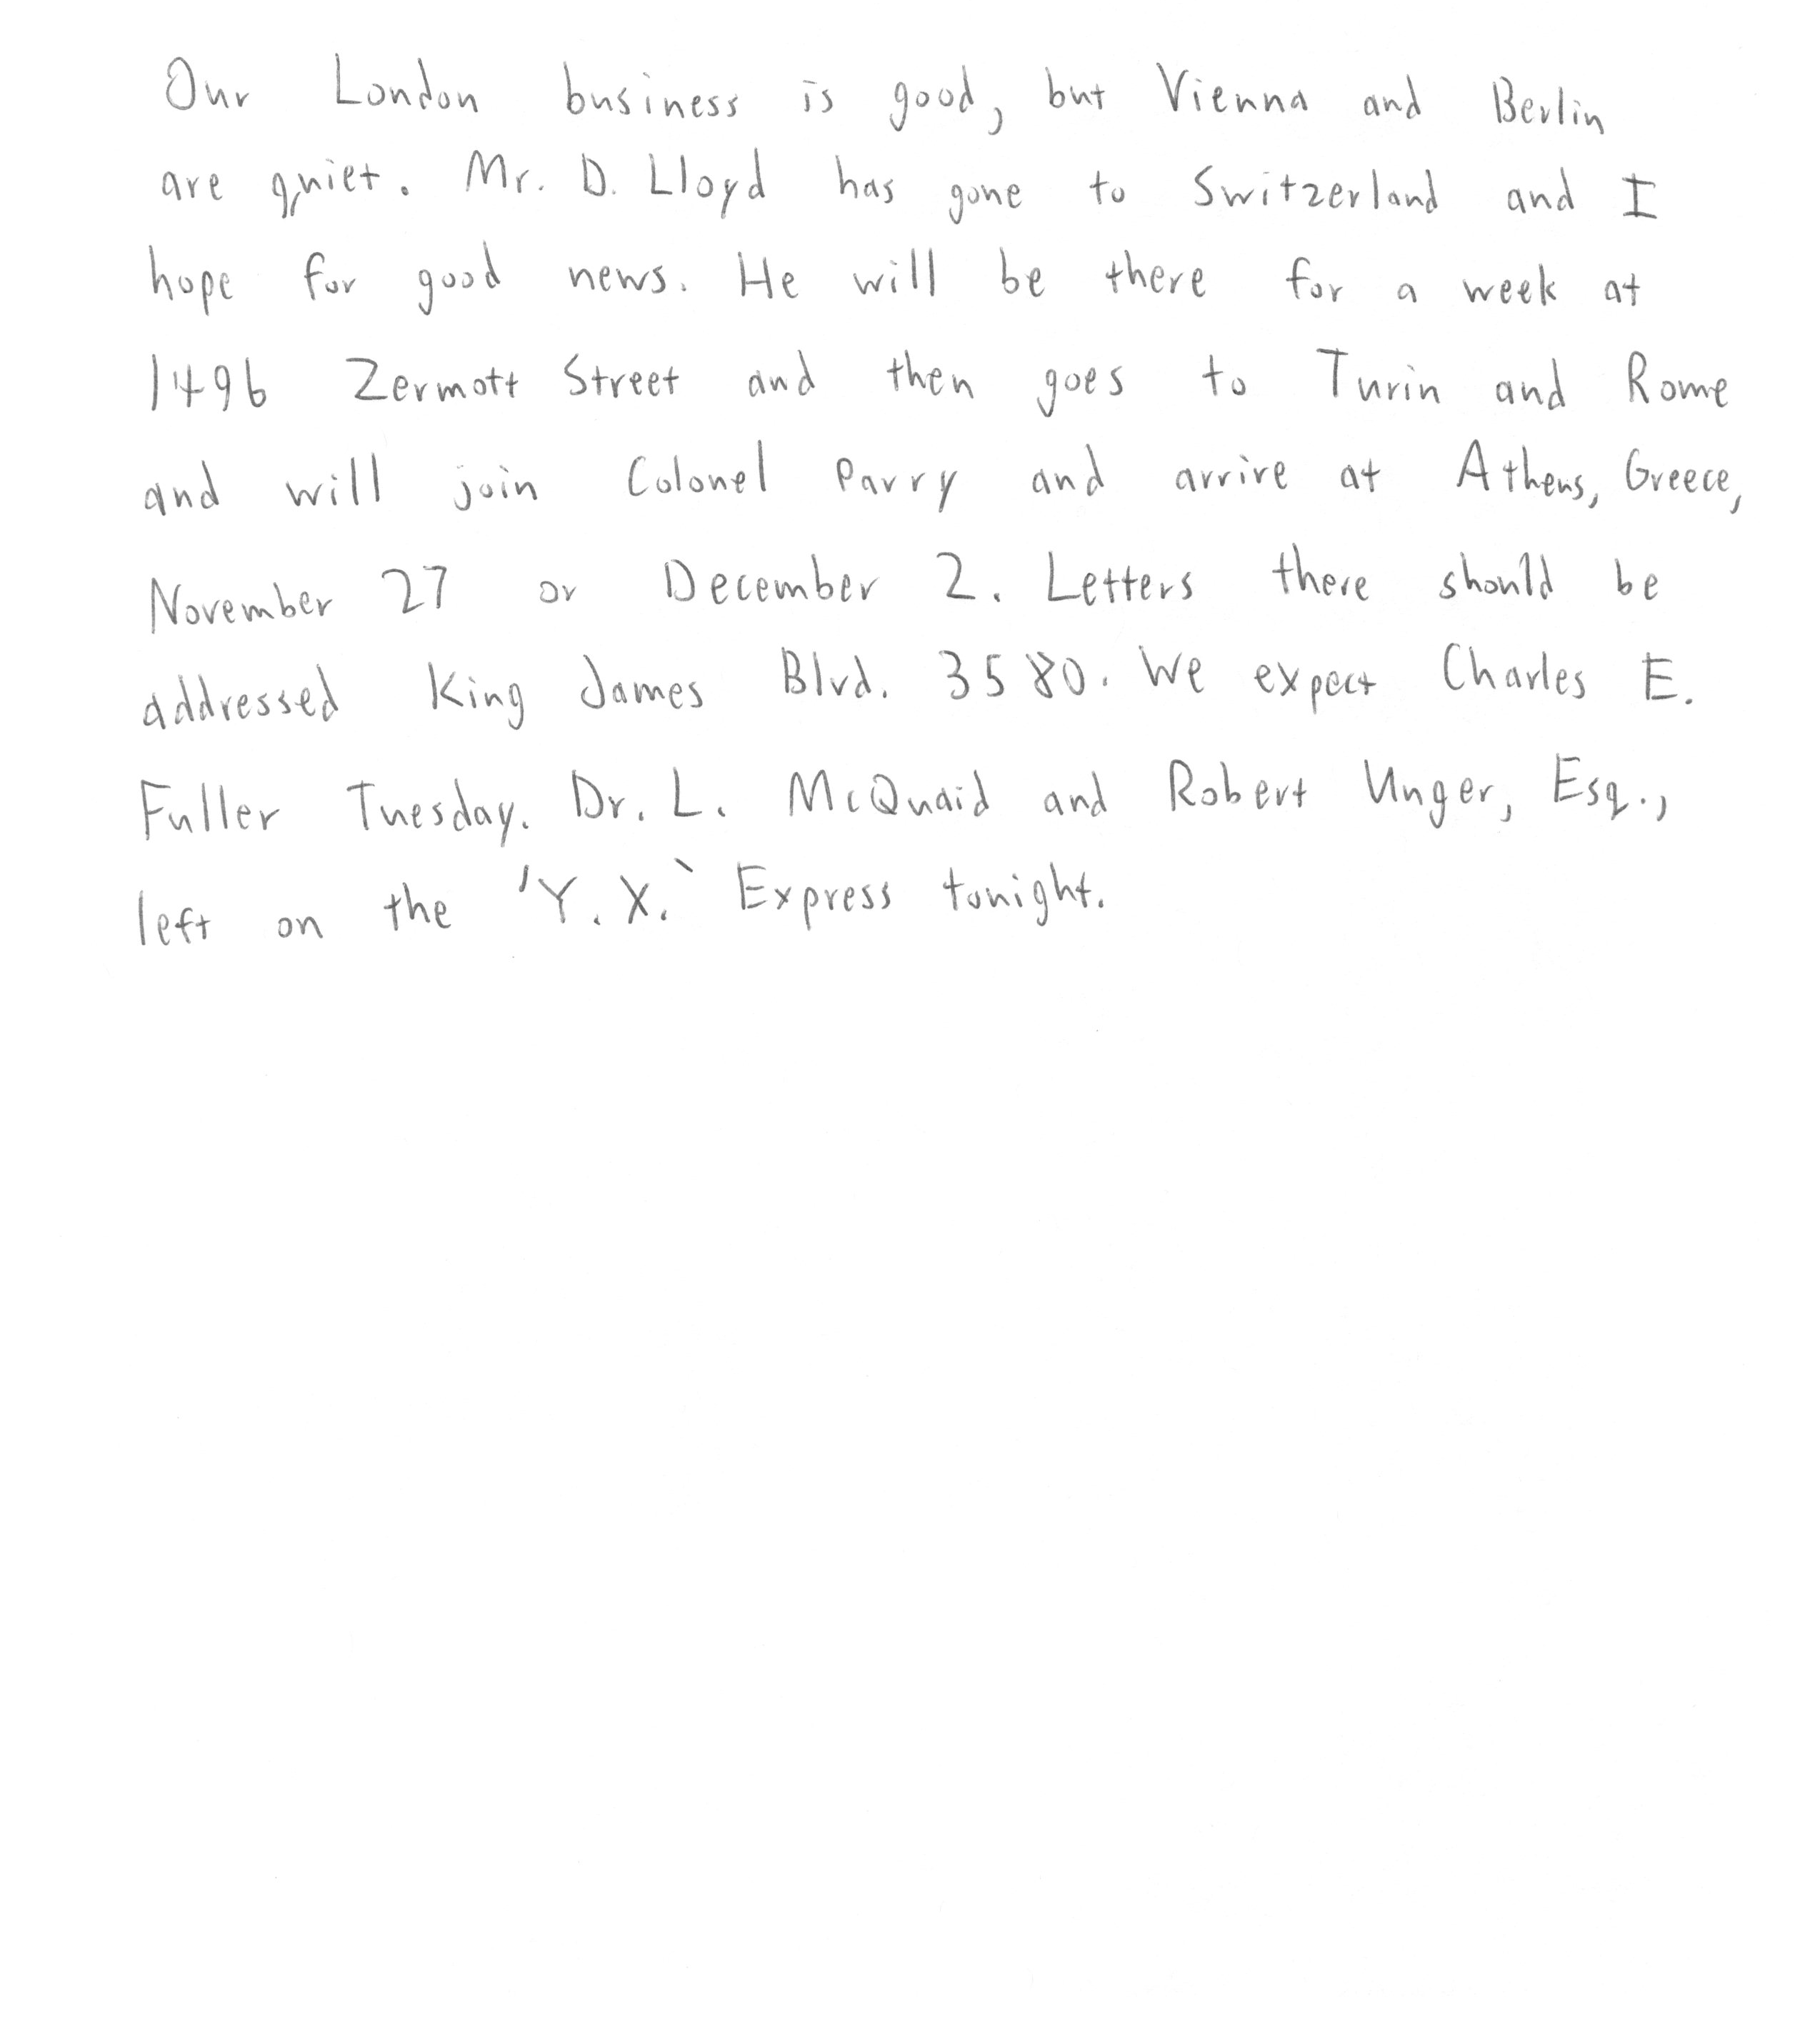 Our London business is good, but Vienna and Berlin
are quiet. Mr. D. Lloyd has gone to Switzerland and I
hope for good news. He will be there for a week at
1496 Zermott Street and then goes to Turin and Rome
and will join Colonel Parry and arrive at Athens, Greece,
November 27 or December 2. Letters there should be
addressed King James Blvd. 3580. We expect Charles E.
Fuller Tuesday. Dr. L. McQuaid and Robert Unger, Esq.,
left on the 'Y.X.` Express tonight.